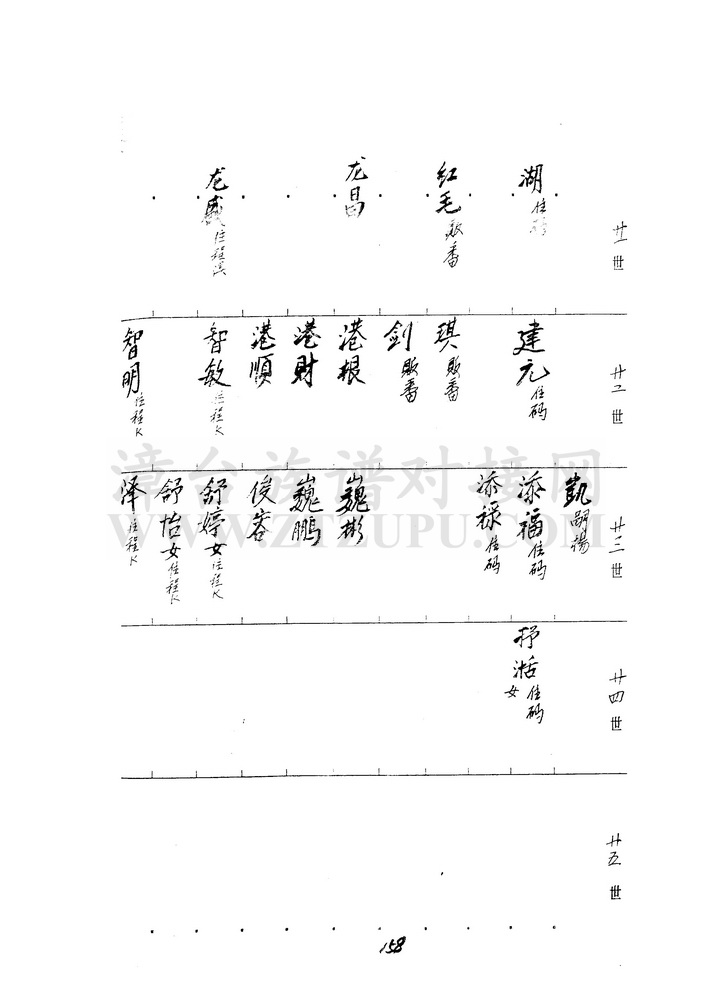 廿一世
湖 住码
红毛 贩番
龙昌
龙盛 住程溪
廿二世
建元 住码
琪 贩番
剑 贩番
港根
港財
港順
智敏 住程K
智明 住程K
廿三世
凱 嗣禓
添福 住码
添禄 住码
巍彬
巍鹏
俊容
舒婷 女 住程K
舒怡 女 住程K
泽 住程K
廿四世
抒湉 女 住码
廿五世
158
漳台族谱对接网
WWW.ZTZUPU.COM